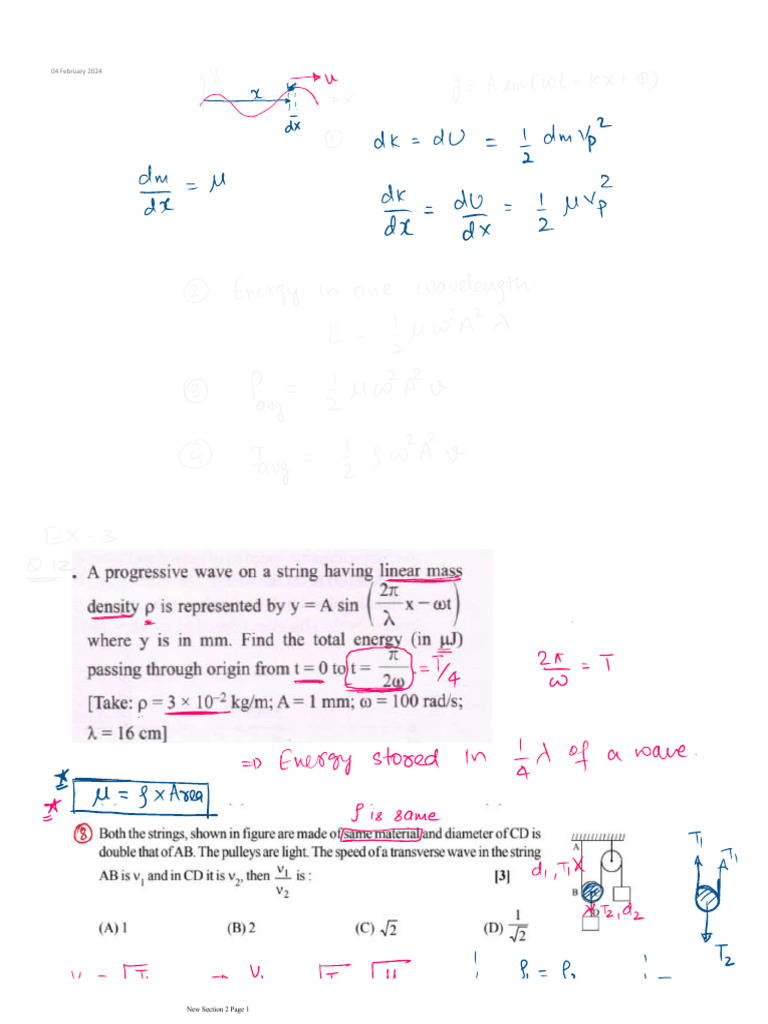 04 February 2024
y = A sin(ωt - kx + Φ)
x
u
dx
①
dk = dU = 1/2 dm Vp²
dm/dx = μ
dk/dx = dU/dx = 1/2 μVp²
② Energy in one wavelength
E = 1/2 μω²A² λ
③ Pavg = 1/2 μω²A² v
④ Iavg = 1/2 ρω²A² v
EX-3
Q.12
. A progressive wave on a string having linear mass
density ρ is represented by y = A sin (2π/λ x − ωt)
where y is in mm. Find the total energy (in μJ)
passing through origin from t = 0 to t = π/2ω. = T/4
2π/ω = T
[Take: ρ = 3 × 10⁻² kg/m; A = 1 mm; ω = 100 rad/s;
λ = 16 cm]
⇒ Energy stored in 1/4 λ of a wave.
μ = ρ × Area
ρ is same
⑧ Both the strings, shown in figure are made of same material and diameter of CD is
double that of AB. The pulleys are light. The speed of a transverse wave in the string
AB is v₁ and in CD it is v₂, then v₁/v₂ is : [3]
(A) 1 (B) 2 (C) √2 (D) 1/√2
A
d₁, T₁
B
T₂, d₂
T₁
T₁
T₂
ρ₁ = ρ₂
New Section 2 Page 1